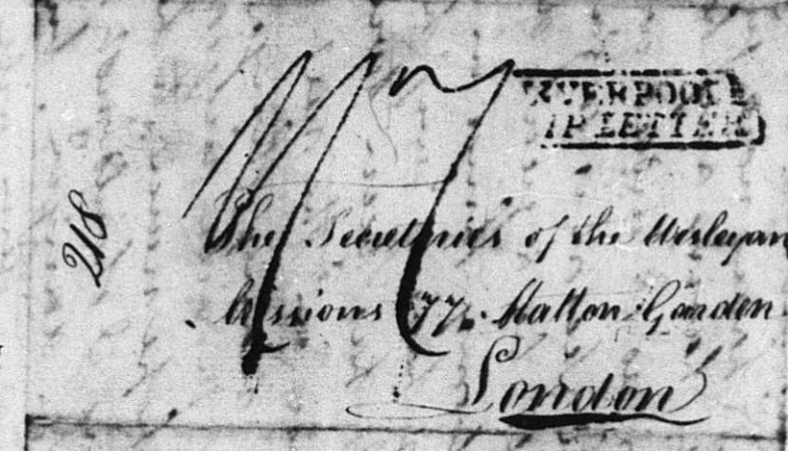 LIVERPOOL
SHIP LETTER
218
The Secretaries of the Wesleyan
Missions 77. Hatton Garden
London